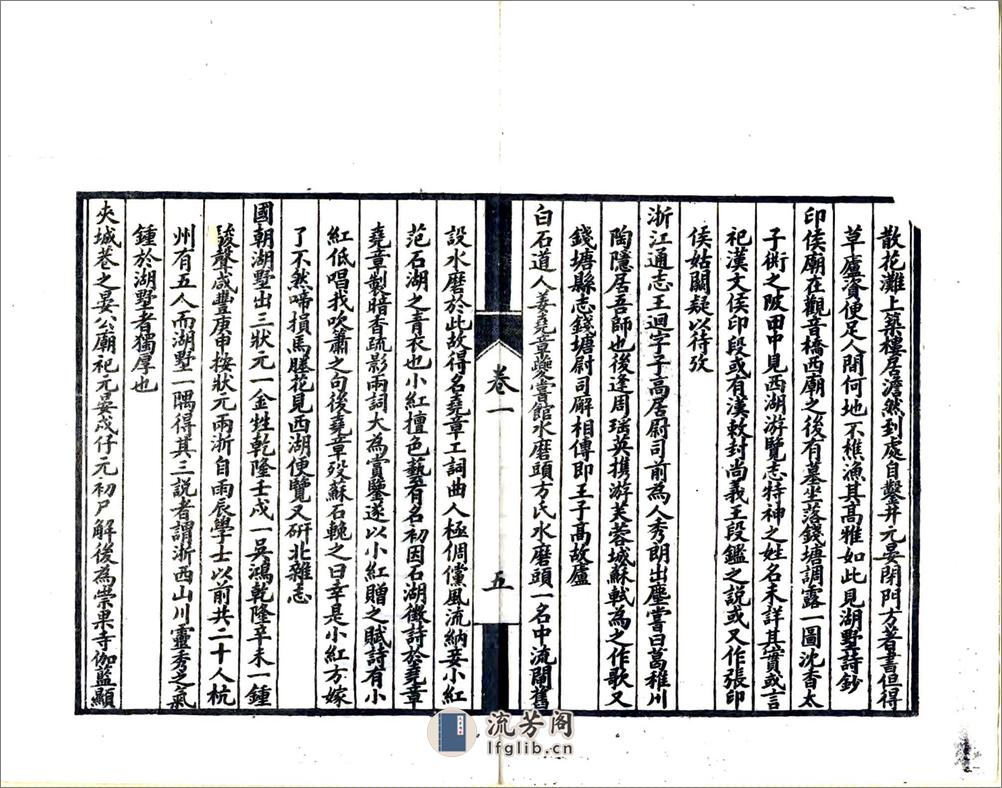 散花灘上築樓居澹然到處自鑿井元晏閉門方著書但得
草廬資便足人間何地不樵漁其高雅如此見湖墅詩鈔
印侯廟在觀音橋西廟之後有墓坐落錢塘調露一圖沈香太
子術之陂甲申見西湖游覽志特神之姓名未詳其實或言
祀漢文侯印段或有漢敕封尚義王段鑑之說或又作張印
侯姑闕疑以待攷
浙江通志王迥字子高居尉司前為人秀朗出塵嘗曰葛稚川
陶隱居吾師也後逢周瑤英携游芙蓉城蘇軾為之作歌又
錢塘縣志錢塘尉司廨相傳即王子高故廬
白石道人姜堯章夔嘗館水磨頭方氏水磨頭一名中流閘舊
卷一
五
設水磨於此故得名堯章工詞曲人極倜儻風流納妾小紅
范石湖之青衣也小紅擅色藝有名初因石湖徵詩於堯章
堯章製暗香疏影兩詞大為賞鑒遂以小紅贈之賦詩有小
紅低唱我吹簫之句後堯章歿蘇石輓之曰幸是小紅方嫁
了不然啼損馬塍花見西湖便覽又研北雜志
國朝湖墅出三狀元一金甡乾隆壬戌一吳鴻乾隆辛未一鍾
駿聲咸豐庚申按狀元兩浙自雨辰學士以前共二十人杭
州有五人而湖墅一隅得其三說者謂浙西山川靈秀之氣
鍾於湖墅者獨厚也
夾城巷之晏公廟祀元晏戌仔元初尸解後為崇果寺伽藍顯
流芳阁
lfglib.cn